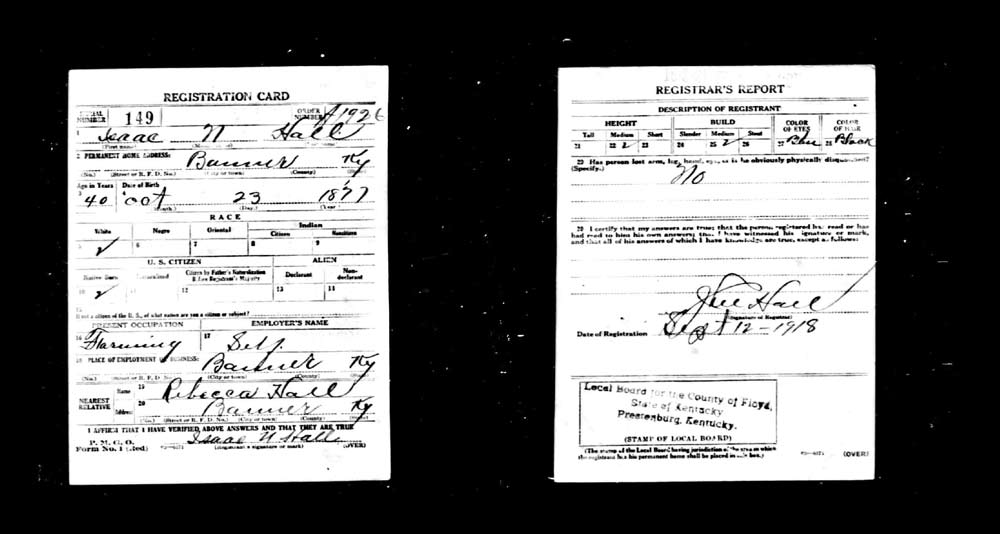 REGISTRATION CARD
SERIAL NUMBER 149 ORDER NUMBER A1926
1 Isaac N Hall
(First name) (Last name)
2 PERMANENT HOME ADDRESS: Banner Ky
(No.) (Street or R. F. D. No.) (City or town) (County) (State)
Age in Years Date of Birth
3 40 4 Oct 23 1877
(Month.) (Day.) (Year.)
RACE
White Negro Oriental Indian
Citizen Noncitizen
5 ✓ 6 7 8 9
U. S. CITIZEN ALIEN
Native Born Naturalized Citizen by Father's Naturalization Before Registrant's Majority Declarant Non-declarant
10 ✓ 11 12 13 14
15
If not a citizen of the U. S., of what nation are you a citizen or subject?
PRESENT OCCUPATION EMPLOYER'S NAME
16 Farming 17 Self
18 PLACE OF EMPLOYMENT OR BUSINESS: Banner Ky
(No.) (Street or R. F. D. No.) (City or town) (County) (State)
NEAREST RELATIVE Name 19 Rebecca Hall
Address 20 Banner Ky
(No.) (Street or R. F. D. No.) (City or town) (County) (State)
I AFFIRM THAT I HAVE VERIFIED ABOVE ANSWERS AND THAT THEY ARE TRUE
P. M. G. O.
Form No. 1 (Red) Isaac N Hall
(Registrant's signature or mark) (OVER)
REGISTRAR'S REPORT
DESCRIPTION OF REGISTRANT
HEIGHT BUILD COLOR OF EYES COLOR OF HAIR
Tall Medium Short Slender Medium Stout
21 22 ✓ 23 24 25 ✓ 26 27 Blue 28 Black
29 Has person lost arm, leg, hand, eye, or is he obviously physically disqualified?
(Specify.) No
30 I certify that my answers are true; that the person registered has read or has
had read to him his own answers; that I have witnessed his signature or mark,
and that all of his answers of which I have knowledge are true, except as follows:
Hall
(Signature of Registrar)
Date of Registration Sept 12-1918
Local Board for the County of Floyd,
State of Kentucky
Prestenburg, Kentucky.
(STAMP OF LOCAL BOARD)
(The stamp of the Local Board having jurisdiction of the area in which
the registrant has his permanent home shall be placed in this box.)
(OVER)